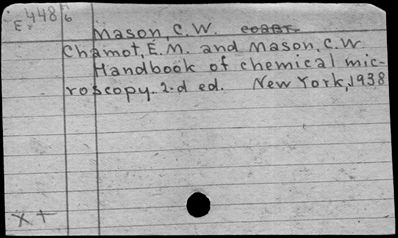 E.448 6
Mason, C.W. coaut.
Chamot, E.M. and Mason, C.W.
Handbook of chemical mic-
roscopy. 2-d ed. New York, 1938
X +